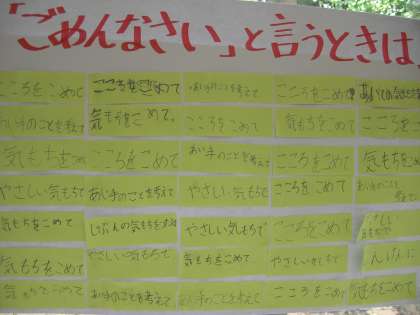 「ごめんなさい」と言うときは、
こころをこめて こころをこめて あい手のことを考えて こころをこめて
あい手のことを考えて 気もちをこめて。 こころをこめて 気もちをこめて こころをこ
気もちをこめ こころをこめて あい手のことを考えて こころをこめて 気もちをこめて
やさしい気もちで あい手のことを考えて やさしい気もちで こころをこめて
気もちをこめて やさしい気もちで こころをこめて
気もちをこめて やさしい気もちで 気もちをこめて やさしい気もちで
気もちをこめて あい手のことを考えて あい手のことを考えて こころをこめて 気もちをこめて